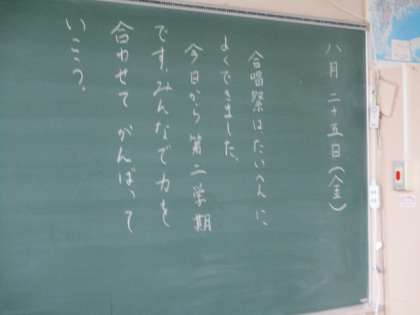 八月二十五日(金)
合唱祭はたいへんに、
よくできました。
今日から第二学期
です。みんなで力を
合わせてがんばって
いこう。